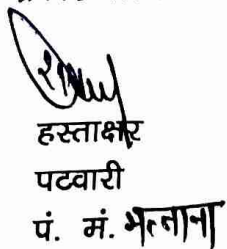 हस्ताक्षर
पटवारी
पं. मं. भत्ताना